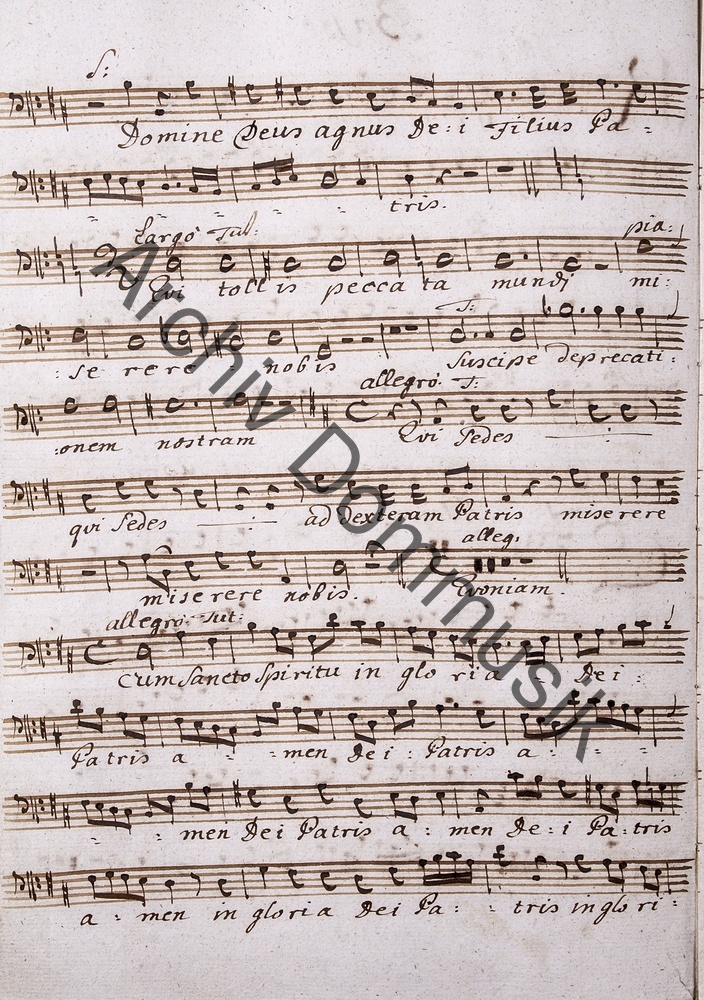 S:
Domine Deus agnus De: i Filius Pa -
- - - - - tris.
Largo Tut: pia:
Qui tollis pecca ta mundi mi:
: se rere nobis Suscipe deprecati:
T:
allegro. T:
:onem nostram Qui Sedes
qui Sedes ad dexteram Patris miserere
alleg:
miserere nobis. Quoniam.
allegro Tut:
Cum Sancto Spiritu in glo ria Dei
Patris a - - men Dei: Patris a - - -
- - men Dei Patris a : men De: i Pa: tris
a - men in gloria Dei Pa: : tris in glo ri -
Archiv Dommusik